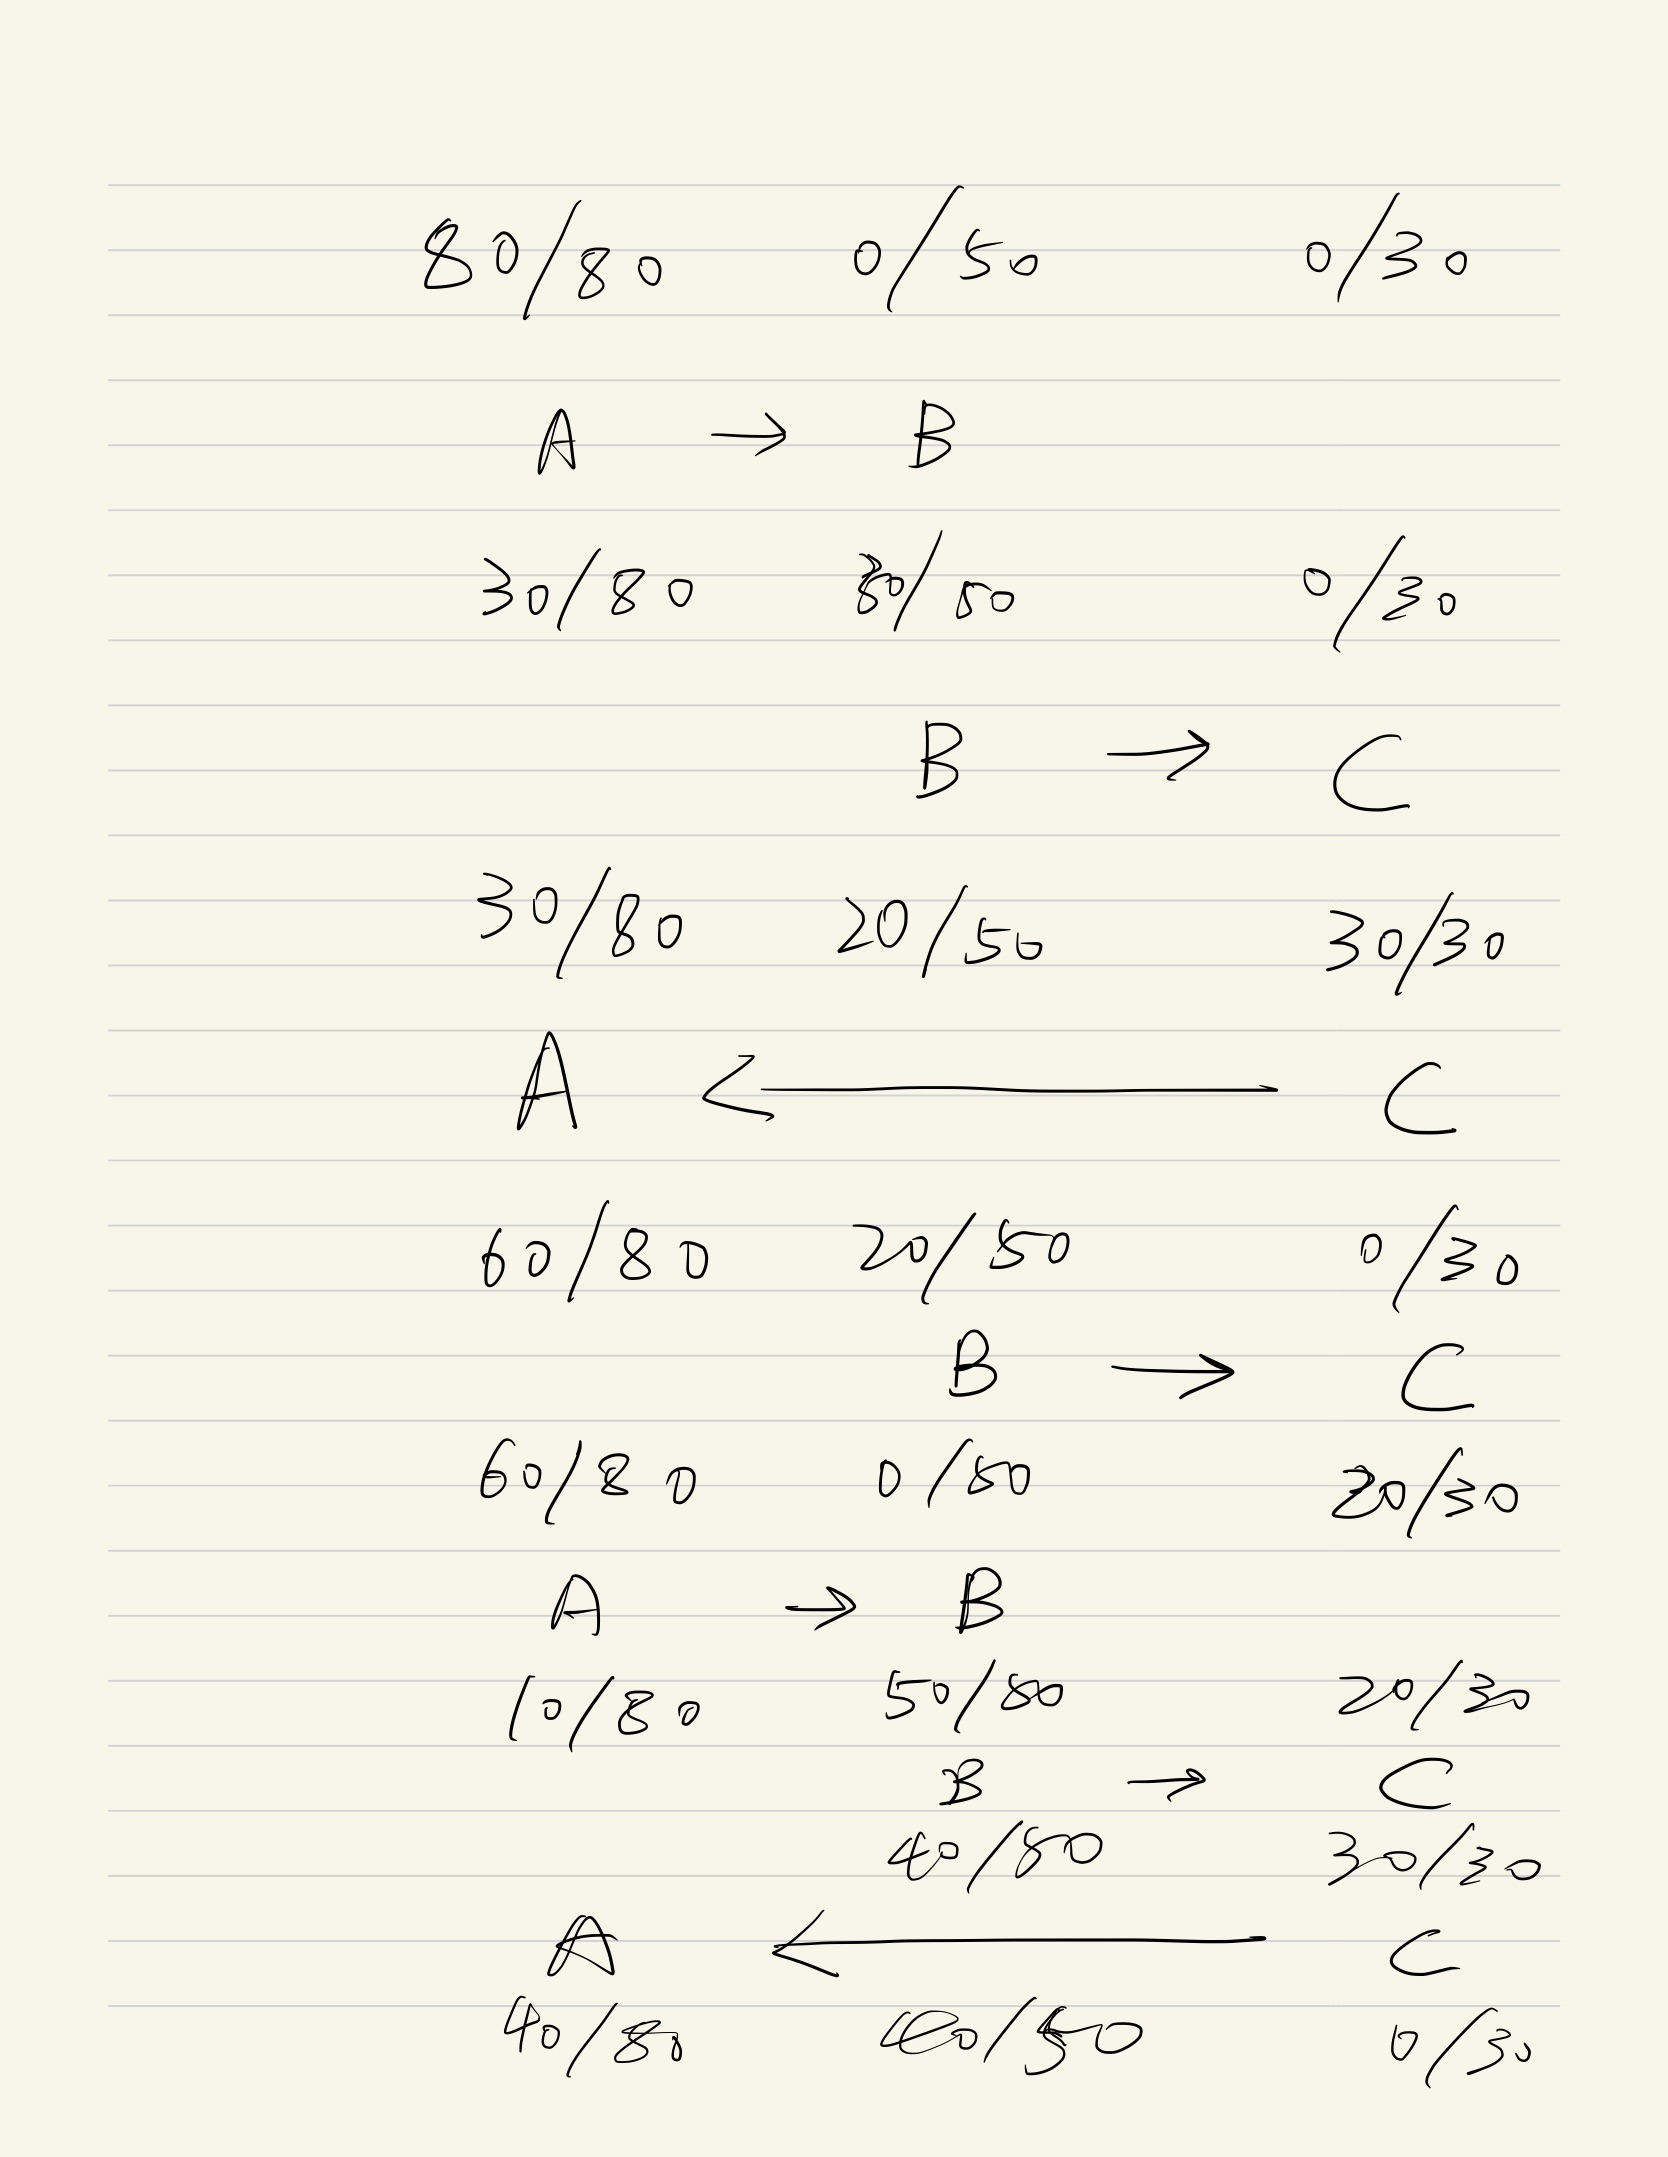 80/80 0/50 0/30
A → B
30/80 /50 0/30
B → C
30/80 20/50 30/30
A ← C
60/80 20/50 0/30
B → C
60/80 0/50 20/30
A → B
10/80 50/50 20/30
B → C
40/50 30/30
A ← C
40/80 40/50 0/30